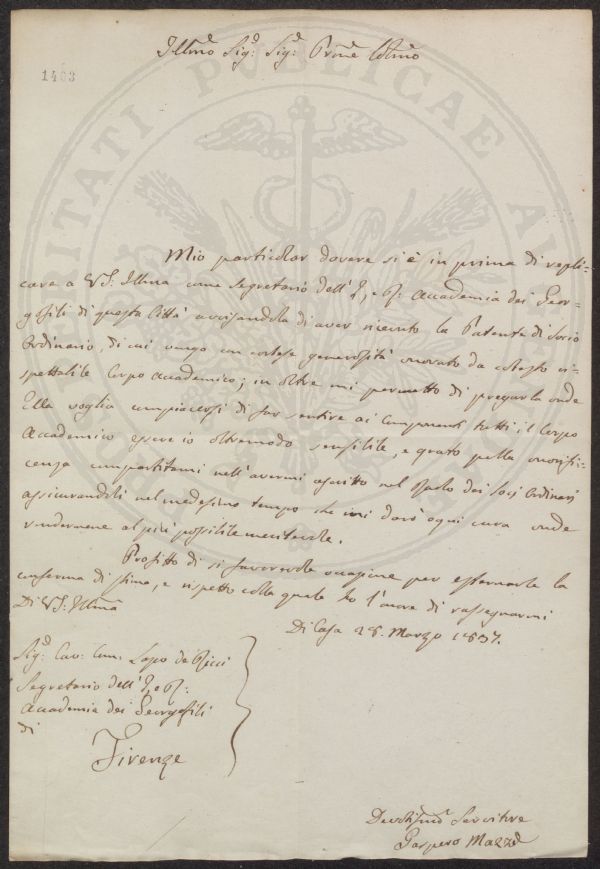 Illmo Sig: Sig: Prone Colmo
1483
Mio particolar dovere si è in prima di repli-
care a VS. Illma come Segretario dell' I. e R. Accademia dei Geor-
gofili di questa Città avvisandola di aver ricevuto la Patente di Socio
Ordinario, di cui vengo con cortese generosità onorato da cotesto ri-
spettabile Corpo Accademico; in oltre mi permetto di pregarla onde
Ella voglia compiacersi di far sentire ai Componenti tutti il Corpo
Accademico essere io oltremodo sensibile, e grato pella onorifi-
cenza compartitami nell' avermi ascritto nel Ruolo dei Socj Ordinarj
assicurandoli nel medesimo tempo che mi darò ogni cura onde
rendermene al più possibile meritevole.
Profitto di sì favorevole occasione per esternarle la
conferma di stima, e rispetto colla quale ho l'onore di rassegnarmi
Di VS. Illma
Di Casa 28. Marzo 1837.
Sig: Cav: Com. Lapo de Ricci
Segretario dell' I. e R.
Accademia dei Georgofili
di
Firenze
Devotismo Servitore
Gaspero
PROSPERITATI PUBLICAE AUGENDAE